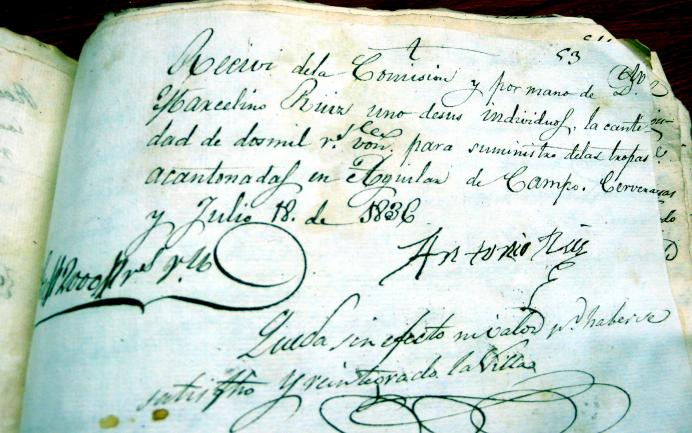 53
Recivi dela Comision y por mano de D.
Marcelino Ruiz uno desus individuos, la canti-
dad de dosmil r.s von. para suministro delas tropas
acantonadas en Aguilar de Campo. Cervera
y Julio 18. de 1836
2000 r.s
Antonio Ruiz
Queda sin efecto ni valor p.r haberse
satisfho y reintegrado la Villa